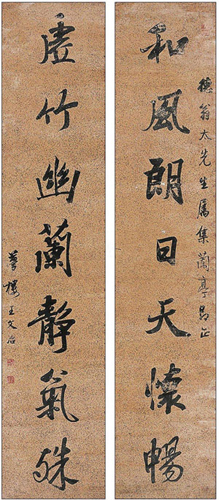 德翁太先生属集兰亭即正
和風朗日天懷暢
虚竹幽蘭靜氣殊
夢樓王文治